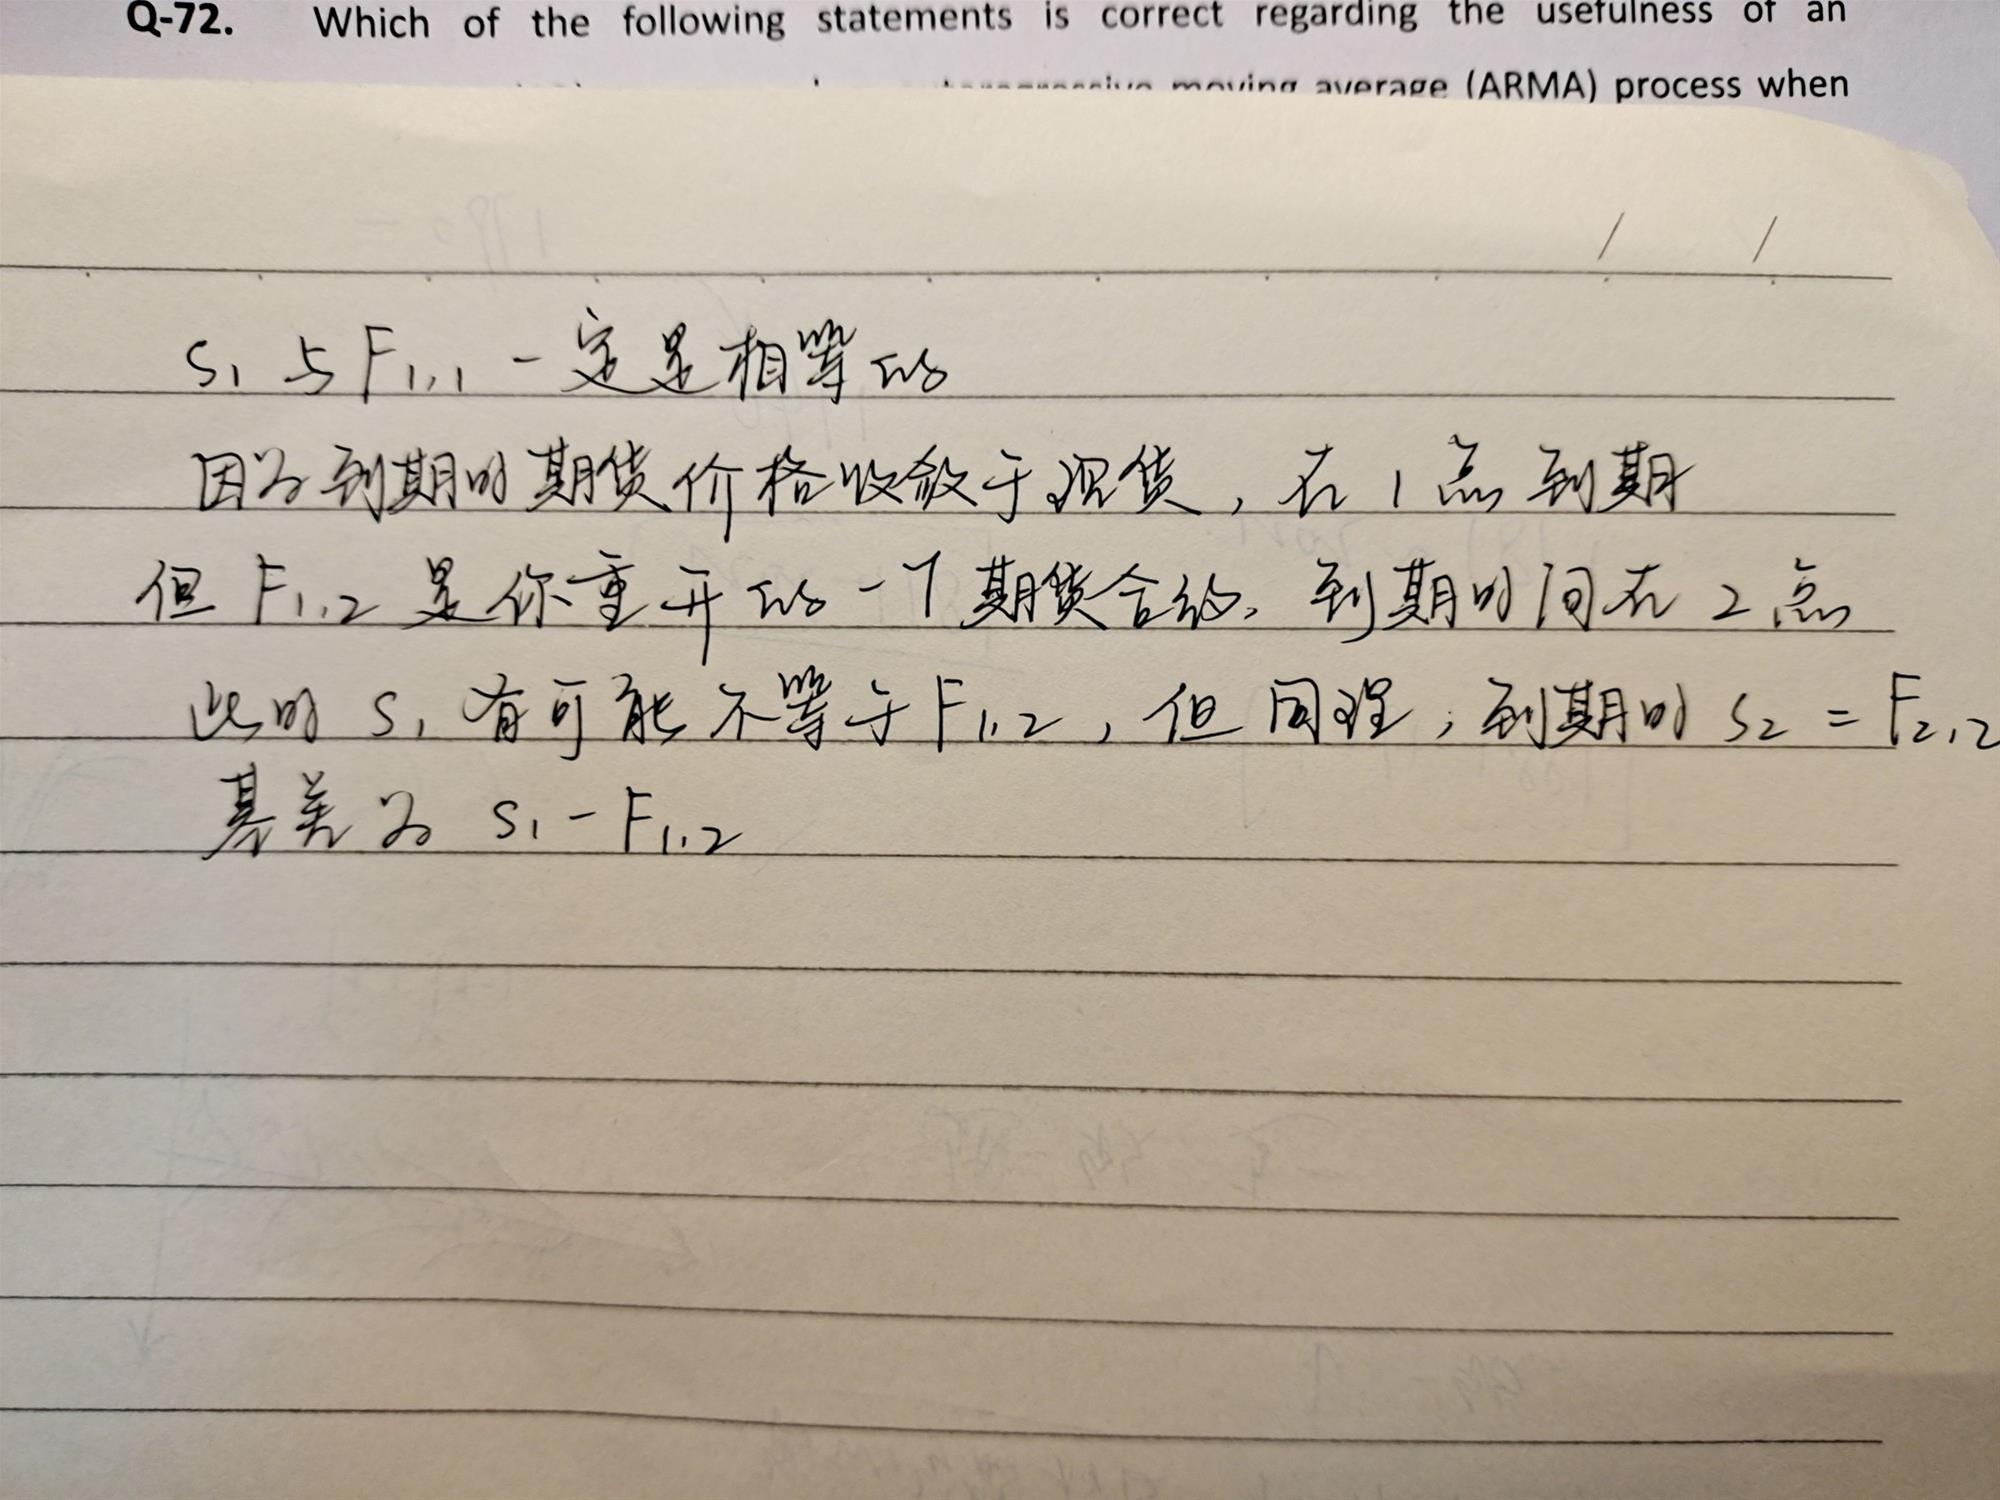 Q-72. Which of the following statements is correct regarding the usefulness of an
autoregressive moving average (ARMA) process when
/ /
S₁与F₁,₁一定是相等的
因为到期时期货价格收敛于现货，在1点到期
但F₁,₂是你重开的一个期货合约，到期时间在2点
此时S₁有可能不等于F₁,₂，但同理，到期时S₂=F₂,₂
基差为S₁-F₁,₂